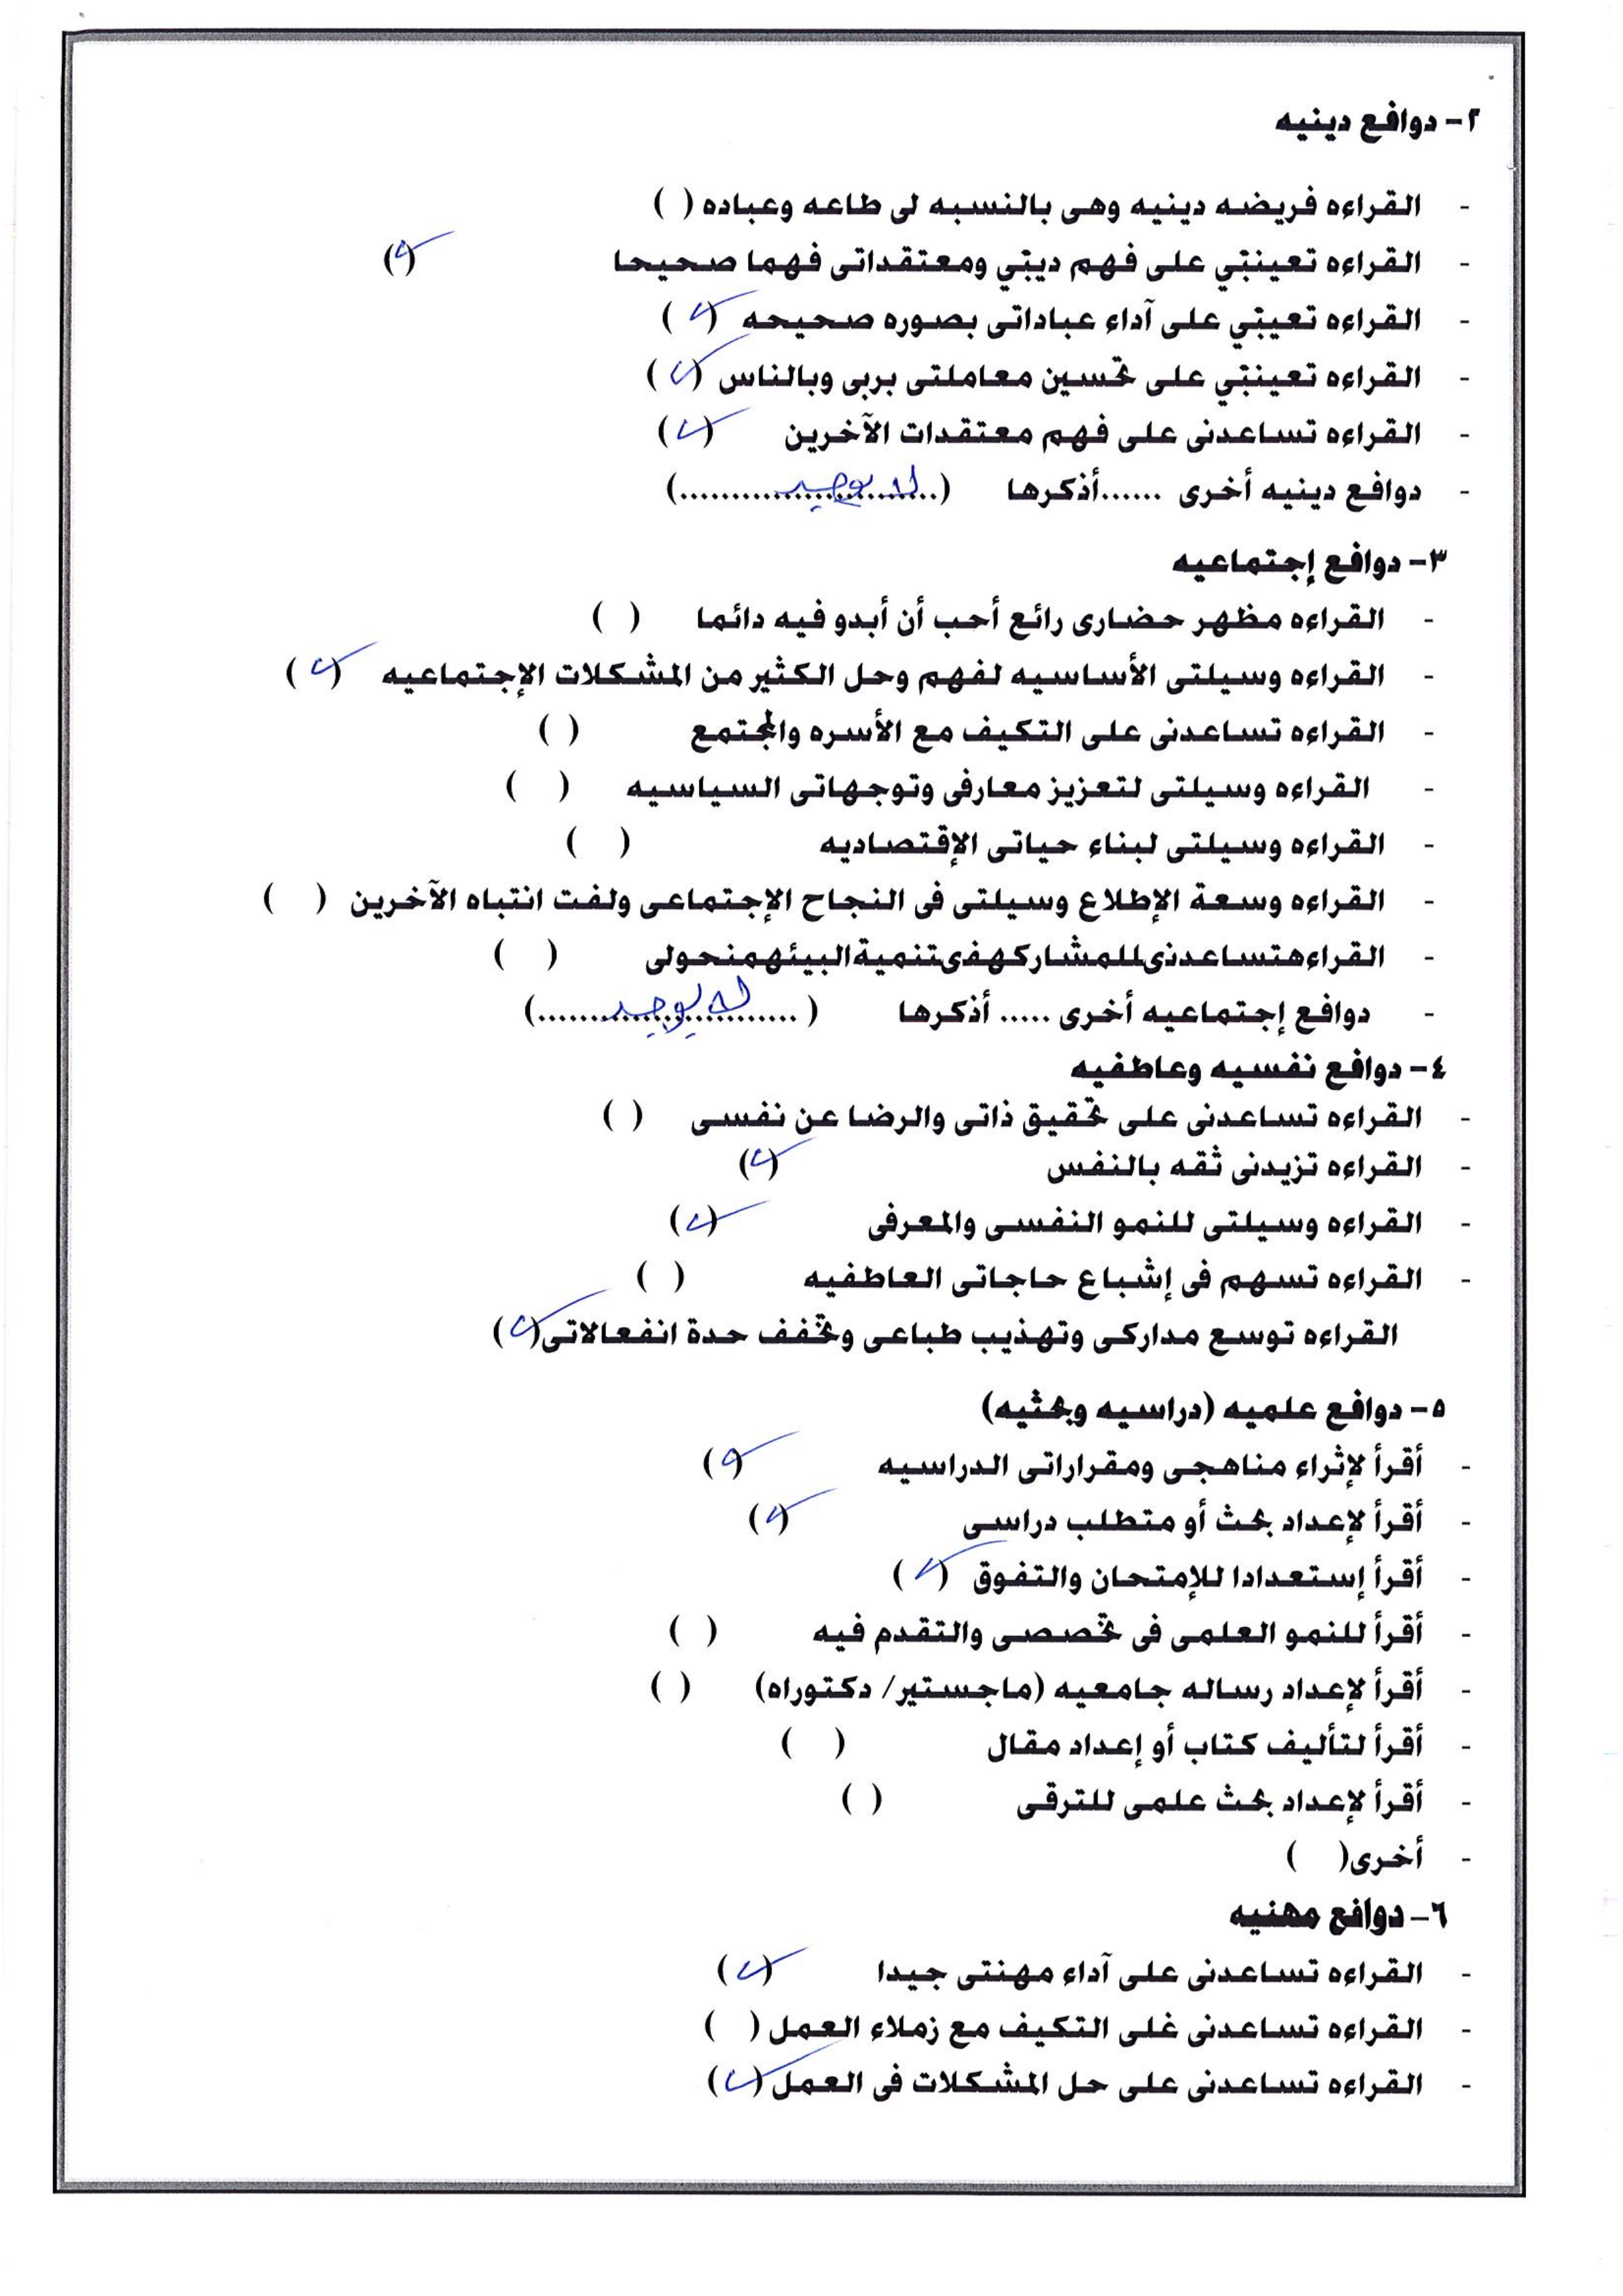 ٢- دوافع دينيه
- القراءه فريضه دينيه وهى بالنسبه لى طاعه وعباده ( )
- القراءه تعيننى على فهم دينى ومعتقداتى فهما صحيحا (✓)
- القراءه تعيننى على آداء عباداتى بصوره صحيحه (✓)
- القراءه تعيننى على تحسين معاملتى بربى وبالناس (✓)
- القراءه تساعدنى على فهم معتقدات الآخرين (✓)
- دوافع دينيه أخرى ......أذكرها (..لا يوجد..)
٣- دوافع إجتماعيه
- القراءه مظهر حضارى رائع أحب أن أبدو فيه دائما ( )
- القراءه وسيلتى الأساسيه لفهم وحل الكثير من المشكلات الإجتماعيه (✓)
- القراءه تساعدنى على التكيف مع الأسره والمجتمع ( )
- القراءه وسيلتى لتعزيز معارفى وتوجهاتى السياسيه ( )
- القراءه وسيلتى لبناء حياتى الإقتصاديه ( )
- القراءه وسعة الإطلاع وسيلتى فى النجاح الإجتماعى ولفت انتباه الآخرين ( )
- القراءهتساعدنىللمشاركهفىتنميةالبيئهمنحولى ( )
- دوافع إجتماعيه أخرى ..... أذكرها (..لا يوجد..)
٤- دوافع نفسيه وعاطفيه
- القراءه تساعدنى على تحقيق ذاتى والرضا عن نفسى ( )
- القراءه تزيدنى ثقه بالنفس (✓)
- القراءه وسيلتى للنمو النفسى والمعرفى (✓)
- القراءه تسهم فى إشباع حاجاتى العاطفيه ( )
القراءه توسع مداركى وتهذيب طباعى وتخفف حدة انفعالاتى(✓)
٥- دوافع علميه (دراسيه وبحثيه)
- أقرأ لإثراء مناهجى ومقرراراتى الدراسيه (✓)
- أقرأ لإعداد بحث أو متطلب دراسى (✓)
- أقرأ إستعدادا للإمتحان والتفوق (✓)
- أقرأ للنمو العلمى فى تخصصى والتقدم فيه ( )
- أقرأ لإعداد رساله جامعيه (ماجستير/ دكتوراه) ( )
- أقرأ لتأليف كتاب أو إعداد مقال ( )
- أقرأ لإعداد بحث علمى للترقى ( )
- أخرى( )
٦- دوافع مهنيه
- القراءه تساعدنى على آداء مهنتى جيدا (✓)
- القراءه تساعدنى غلى التكيف مع زملاء العمل ( )
- القراءه تساعدنى على حل المشكلات فى العمل (✓)